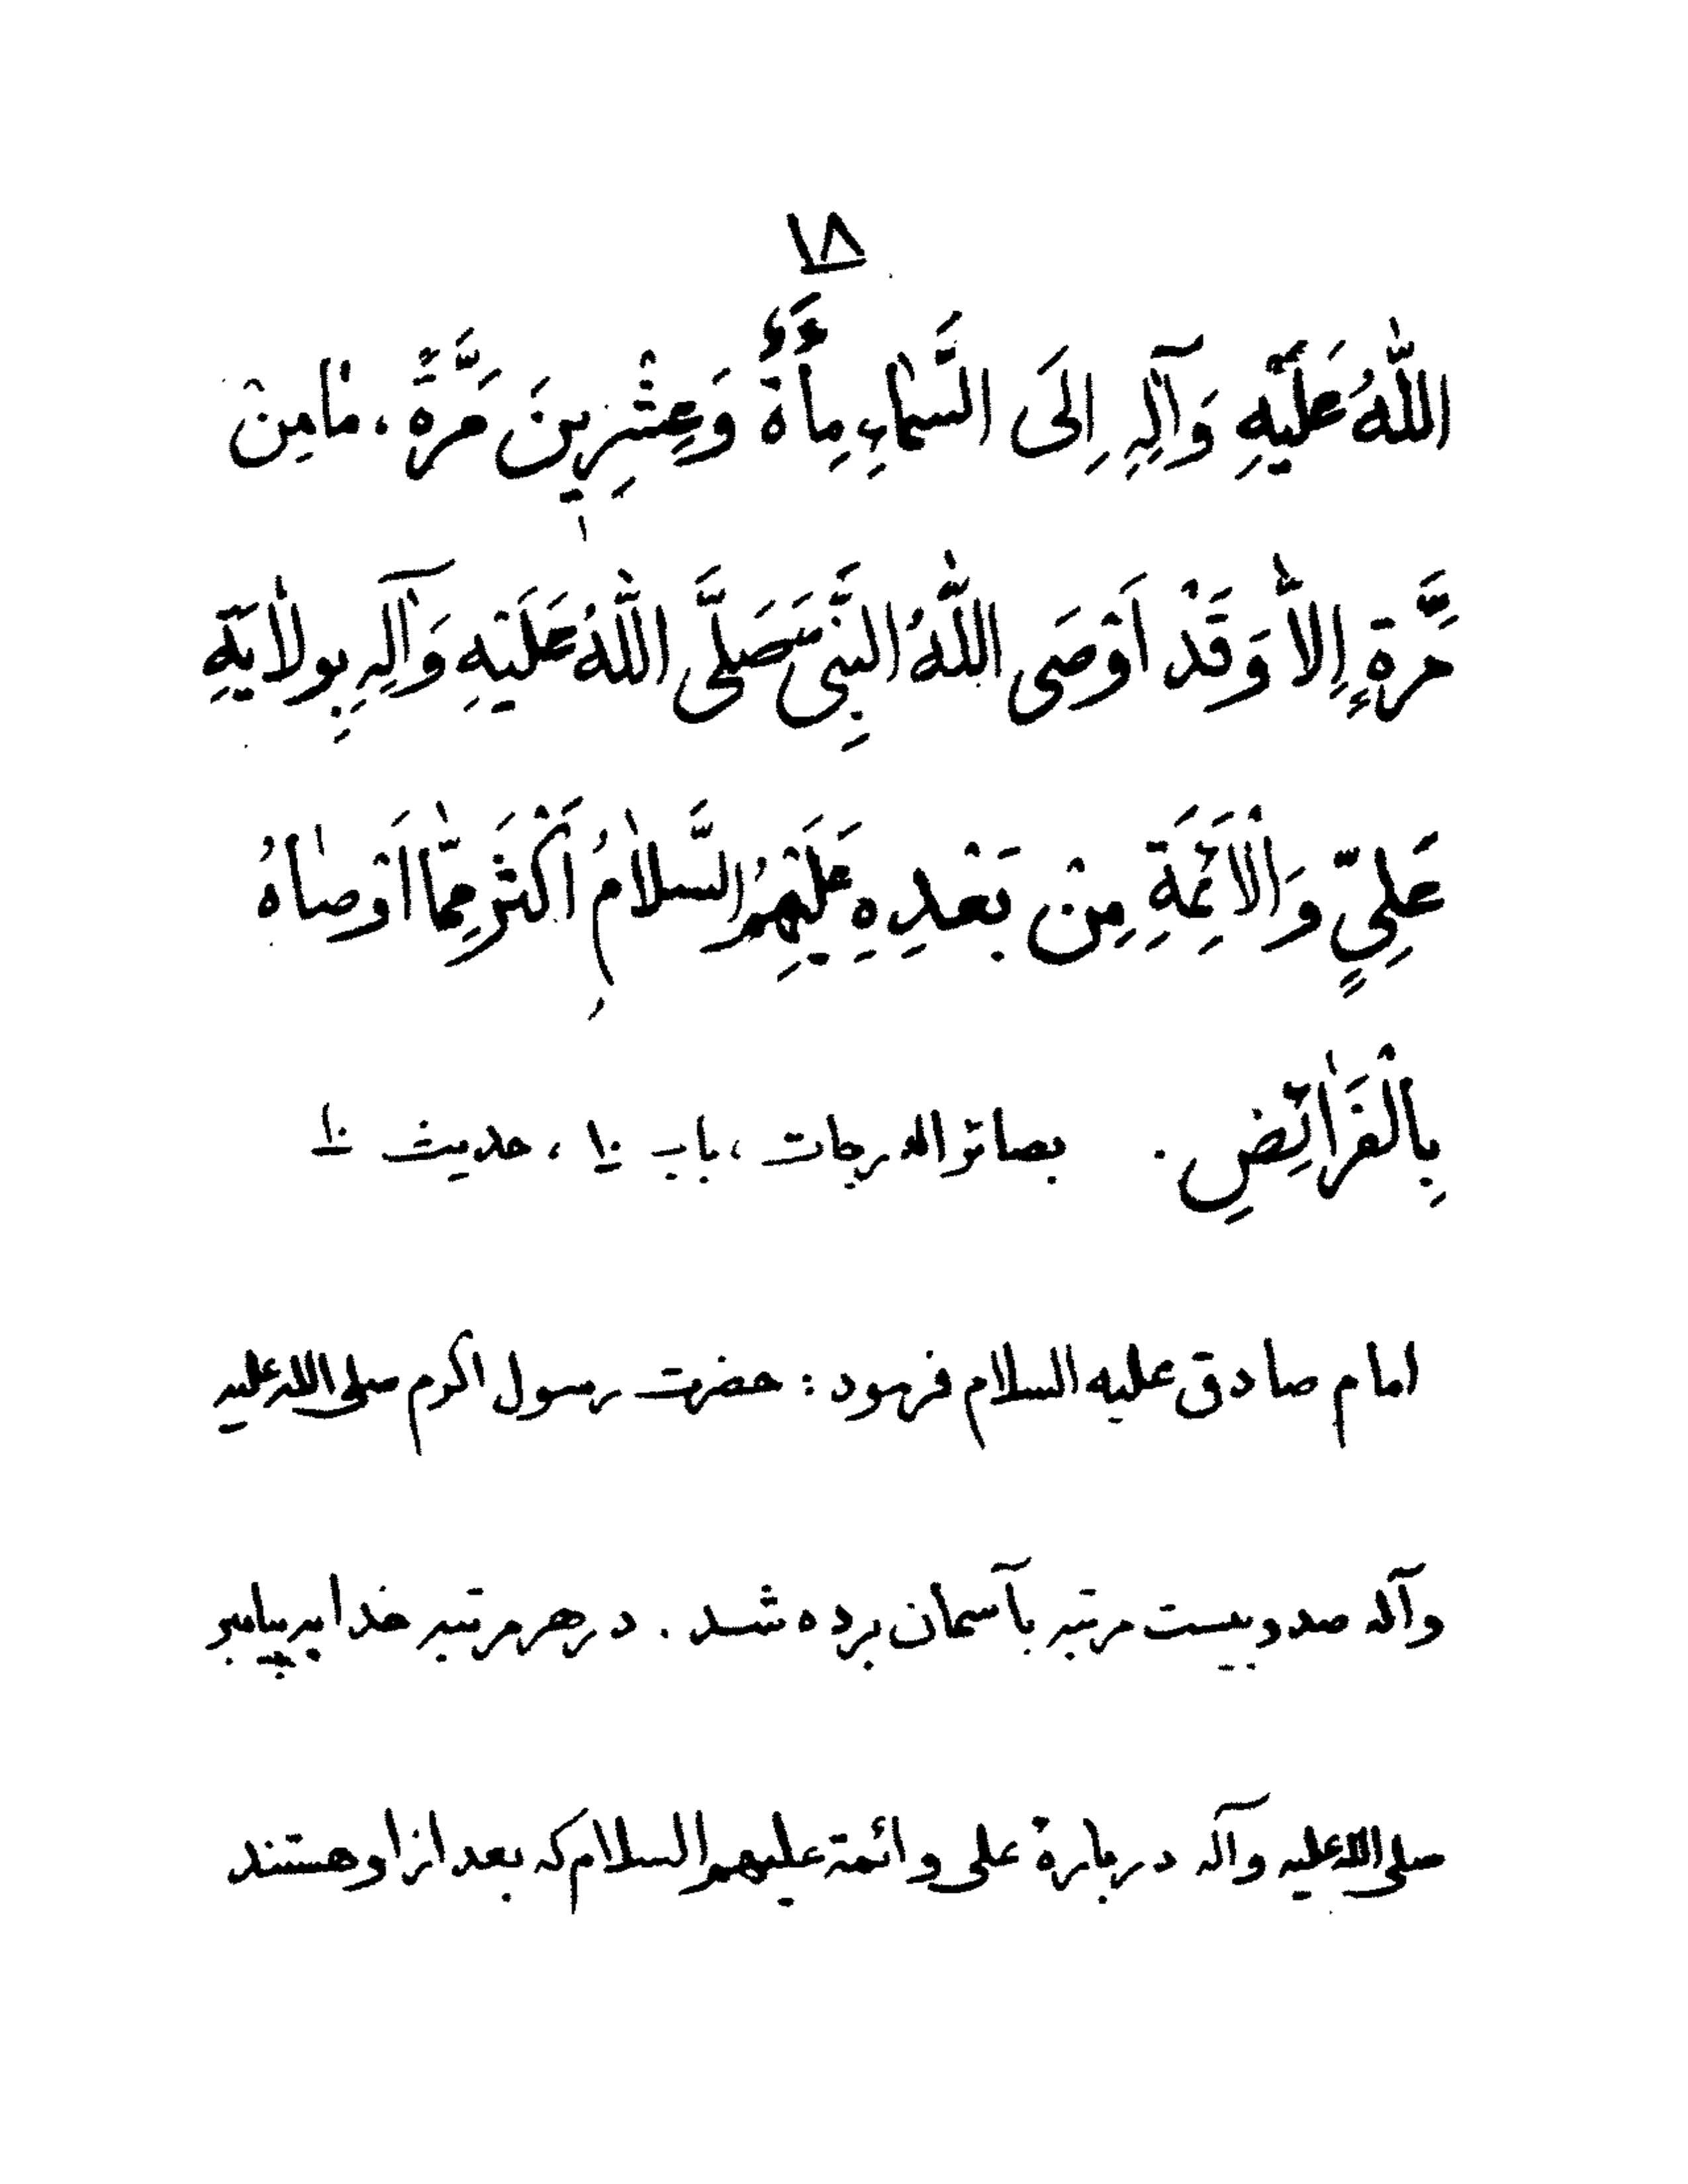 ۱۸
اللّٰهُ عَلَيْهِ وَآلِهِ اِلَى السَّمٰاءِ مِأَةً وَعِشْرِينَ مَرَّةً، مٰا مِنْ
مَرَّةٍ اِلاّٰ وَقَدْ اَوْصَى اللّٰهُ النَّبِىَّ صَلَّى اللّٰهُ عَلَيْهِ وَآلِهِ بِوِلاٰيَةِ
عَلِىٍّ وَالْاَئِمَّةِ مِنْ بَعْدِهِ عَلَيْهِمُ السَّلاٰمُ اَكْثَرَ مِمّٰا اَوْصٰاهُ
بِالْفَرٰائِضِ . بصائر الدرجات، باب ۱۰، حدیث ۱۰
امام صادق علیه السلام فرمود : حضرت رسول اکرم صلی الله علیه
وآله صد و بیست مرتبه بآسمان برده شد . در هر مرتبه خدا به پیامبر
صلی الله علیه وآله دربارهٔ علی و ائمة علیهم السلام که بعد از او هستند